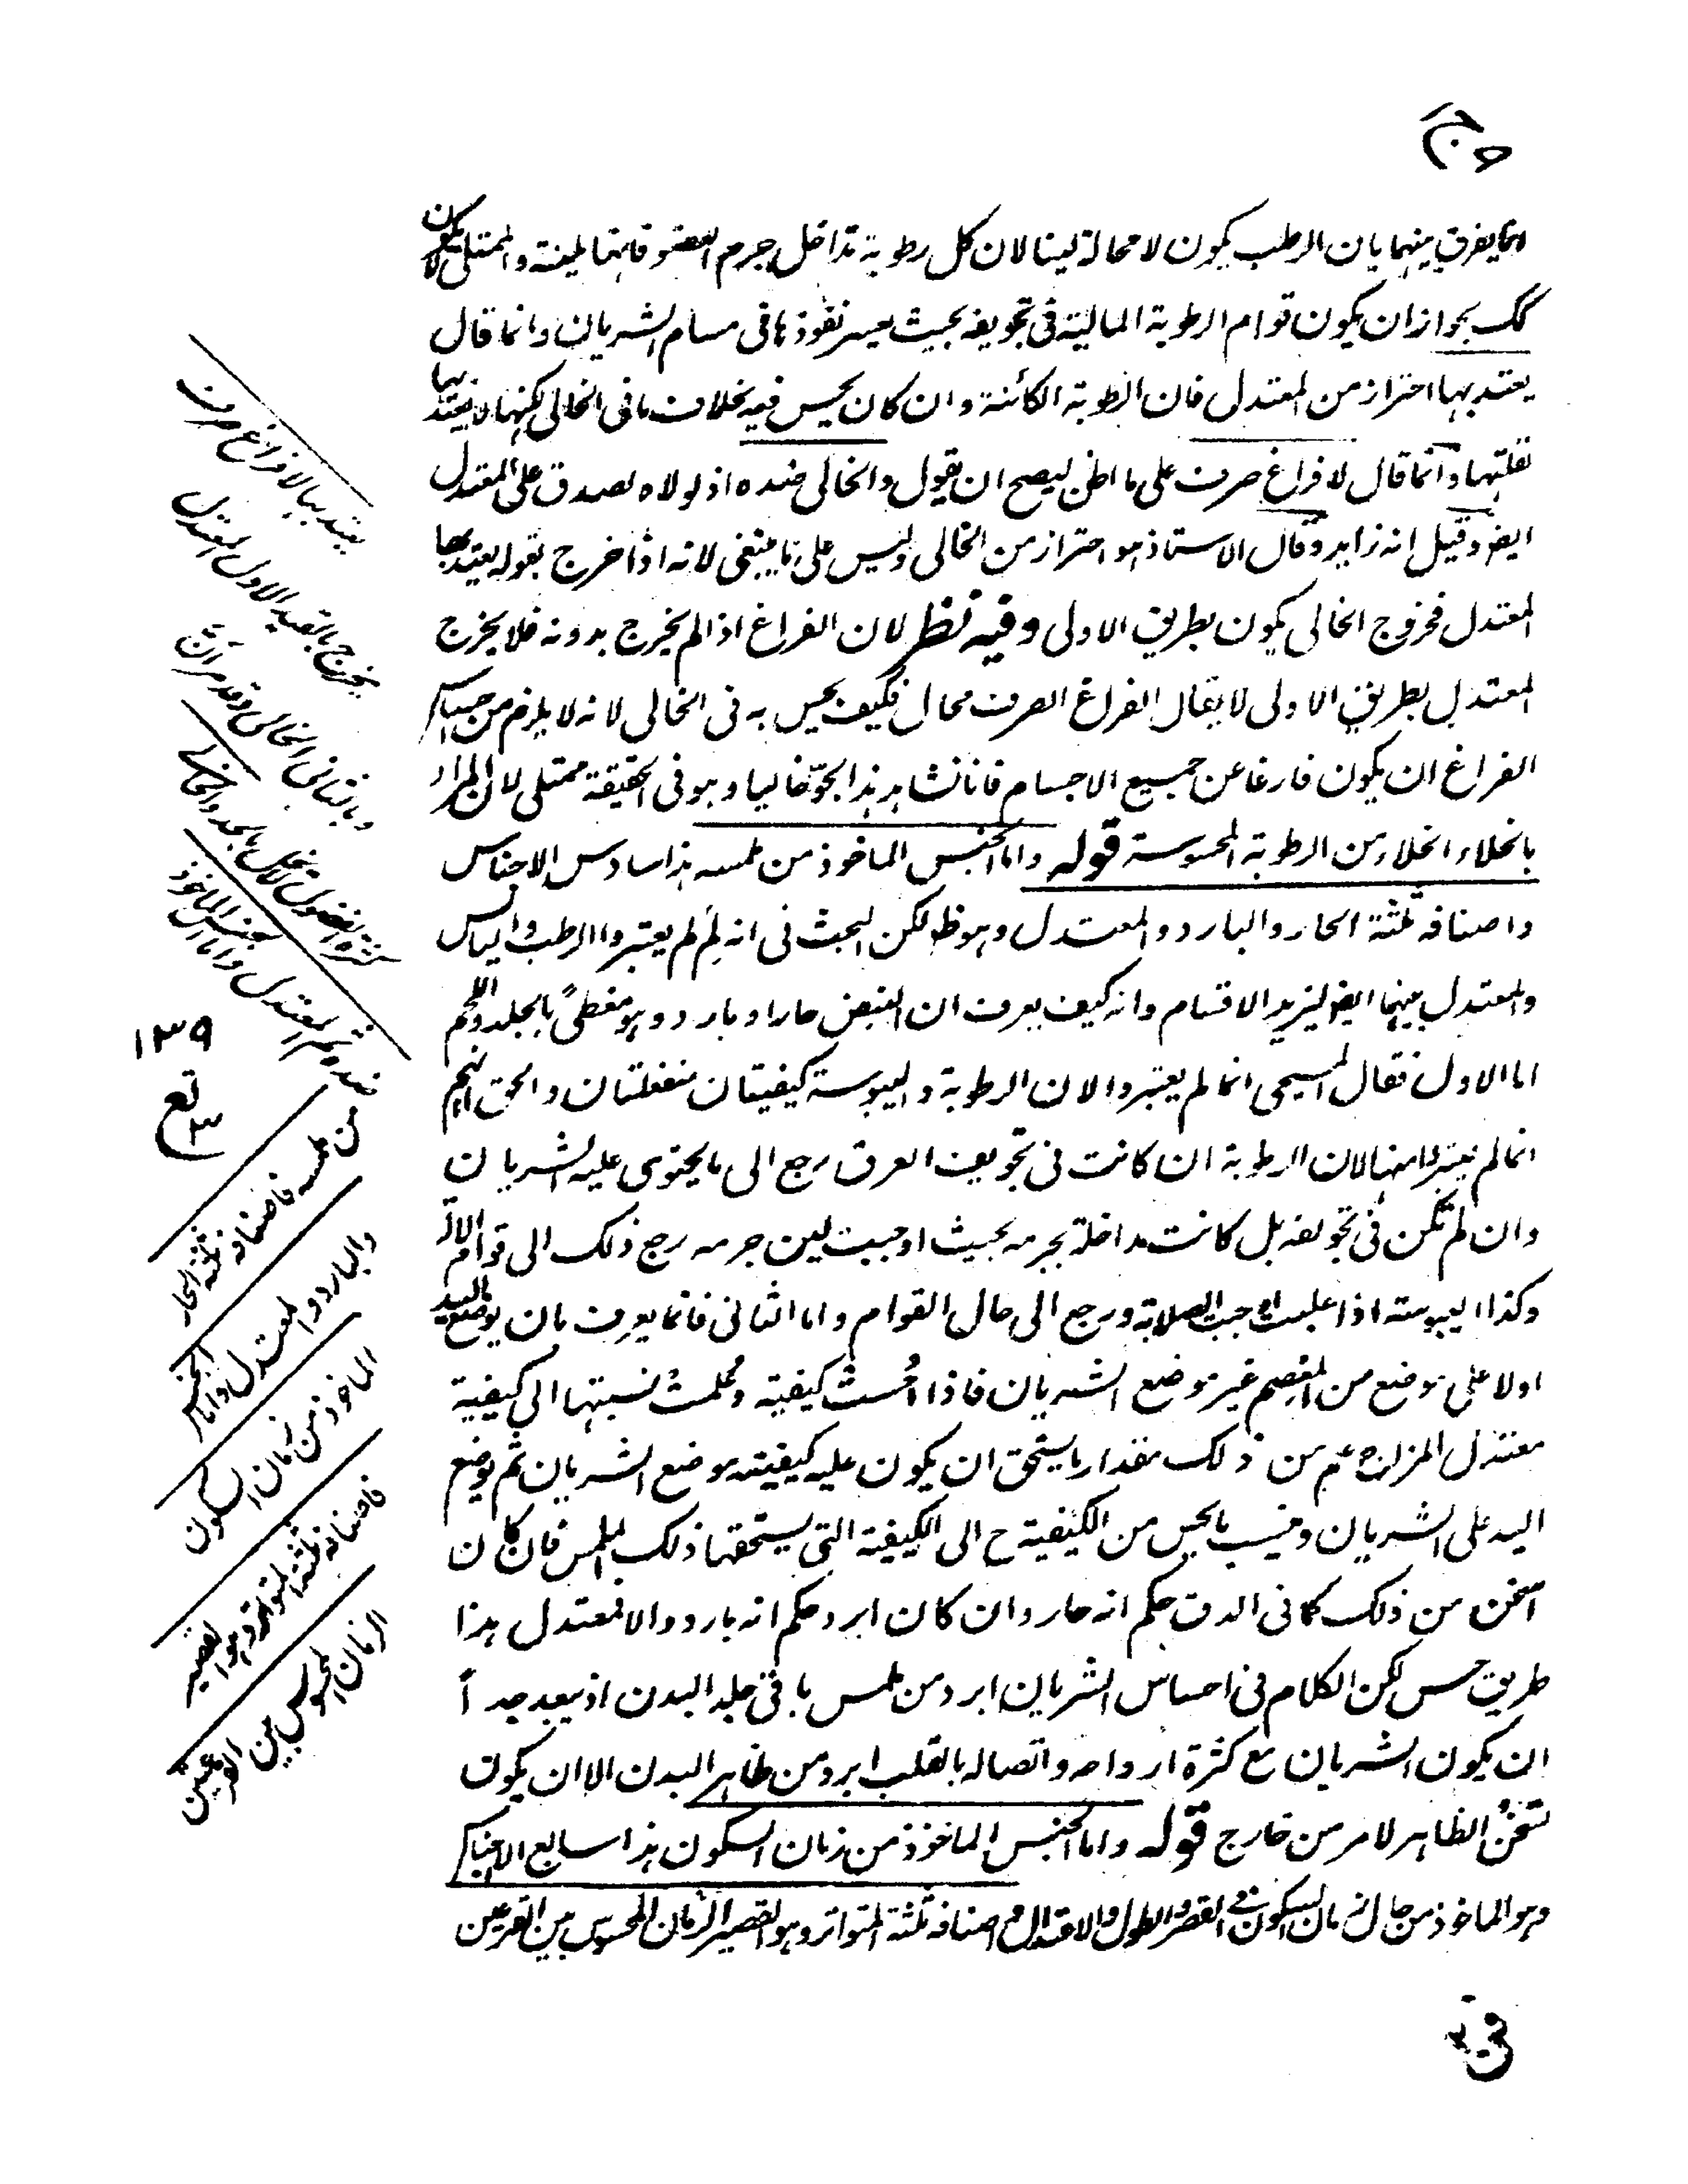 وانما يفرق بينهما بان الرطب يكون لا محالة لينا لان كل رطوبة تداخل جرم العضو فانها تلينه والممتلى لا يكون
كك بجواز ان يكون قوام الرطوبة المالية فى تجويفه بحيث يعسر نفوذها فى مسام الشريان وانما قال
يعتد بها احتراز من المعتدل فان الرطوبة الكائنة وان كان يحس فيه بخلاف ما فى الخالى لكنها لا يعتد بها
لقلتها وانما قال لا فراغ صرف على ما اظن ليصح ان يقول والخالى ضده اذ لولاه لصدق على المعتدل
ايضا وقيل انه زايد وقال الاستاذ هو احتراز من الخالى وليس على ما ينبغى لانه اذا خرج بقوله يعتد بها
المعتدل فخروج الخالى يكون بطريق الاولى وفيه نظر لان الفراغ اذا لم يخرج بدونه فلا يخرج
المعتدل بطريق الاولى لا يقال الفراغ الصرف محال فكيف يحس به فى الخالى لانه لا يلزم من احساس
الفراغ ان يكون فارغا عن جميع الاجسام فانا نشاهد هذا الجوّ خاليا وهو فى الحقيقة ممتلى لان المراد
بالخلاء الخلاء من الرطوبة المحسوسة قوله واما الجنس الماخوذ من ملمسه هذا سادس الاجناس
واصنافه ثلثة الحار والبارد والمعتدل وهو ظ لكن البحث فى انه لِمَ لم يعتبروا الرطب واليابس
والمعتدل بينهما ايضا ليزيد الاقسام وانه كيف يعرف ان النبض حار او بارد وهو مغطىً بالجلد واللحم
اما الاول فقال المسيحى انما لم يعتبروا لان الرطوبة واليبوسة كيفيتان منفعلتان والحق انهم
انما لم يعتبروا ههنا لان الرطوبة ان كانت فى تجويف العرق رجع الى ما يحتوى عليه الشريان
وان لم تكن فى تجويفه بل كانت مداخلة بجرمه بحيث اوجبت لين جرمه رجع ذلك الى قوام الالة
وكذا اليبوسة اذا غلبت اوجبت الصلابة ورجع الى حال القوام واما الثانى فانما يعرف بان يوضع اليد
اولا على موضع من المعصم غير موضع الشريان فاذا اُحست كيفيته وعُلمت نسبتها الى كيفية
معتدل المزاج علم من ذلك مقدار ما يستحق ان يكون عليه كيفيته موضع الشريان ثم يوضع
اليد على الشريان وينسب ما يحس من الكيفية ح الى الكيفية التى يستحقها ذلك الملمس فان كان
اسخن من ذلك كما فى الدق حكم انه حار وان كان ابرد حكم انه بارد والا فمعتدل هذا
طريق حسن لكن الكلام فى احساس الشريان ابرد من ملمس باقى جلد البدن اذ يبعد جداً
ان يكون الشريان مع كثرة ارواحه واتصاله بالقلب ابرد من ظاهر البدن الا ان يكون
تسخُّن الظاهر لامر من خارج قوله واما الجنس الماخوذ من زمان السكون هذا سابع الاجناس
وهو الماخوذ من حال زمان السكون فى القصر والطول والاعتدال واصنافه ثلثة المتواتر وهو القصير الزمان المحسوس بين القرعتين
يعتد بها لا فراغ صرف
يخرج بالقيد الاول المعتدل
وبالثانى الخالى وقد مر ان
ضده ثم المعتدل واما الجنس الماخوذ
١٣٩
من ملمسه فاصنافه ثلثة الحار
والبارد والمعتدل واما الجنس
الماخوذ من زمان السكون
فاصنافه ثلثة المتواتر وهو القصير
الزمان المحسوس بين القرعتين